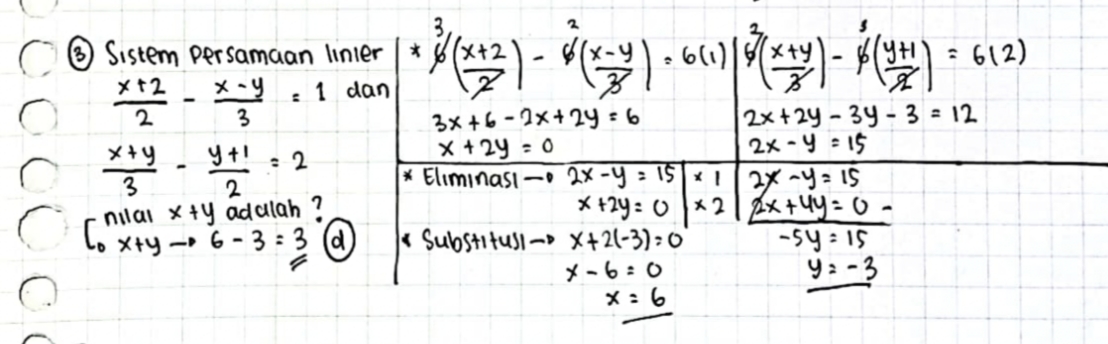 ③ Sistem persamaan linier
x+2/2 - x-y/3 = 1 dan
x+y/3 - y+1/2 = 2
nilai x+y adalah ?
↳ x+y → 6 - 3 = 3 (d)
* 6³(x+2/2) - 6²(x-y/3) = 6(1)
3x+6-2x+2y = 6
x + 2y = 0
6²(x+y/3) - 6³(y+1/2) = 6(2)
2x+2y - 3y - 3 = 12
2x - y = 15
* Eliminasi → 2x - y = 15 | x 1 | 2x - y = 15
x + 2y = 0 | x 2 | 2x + 4y = 0 -
-5y = 15
y = -3
* Substitusi → x + 2(-3) = 0
x - 6 = 0
x = 6